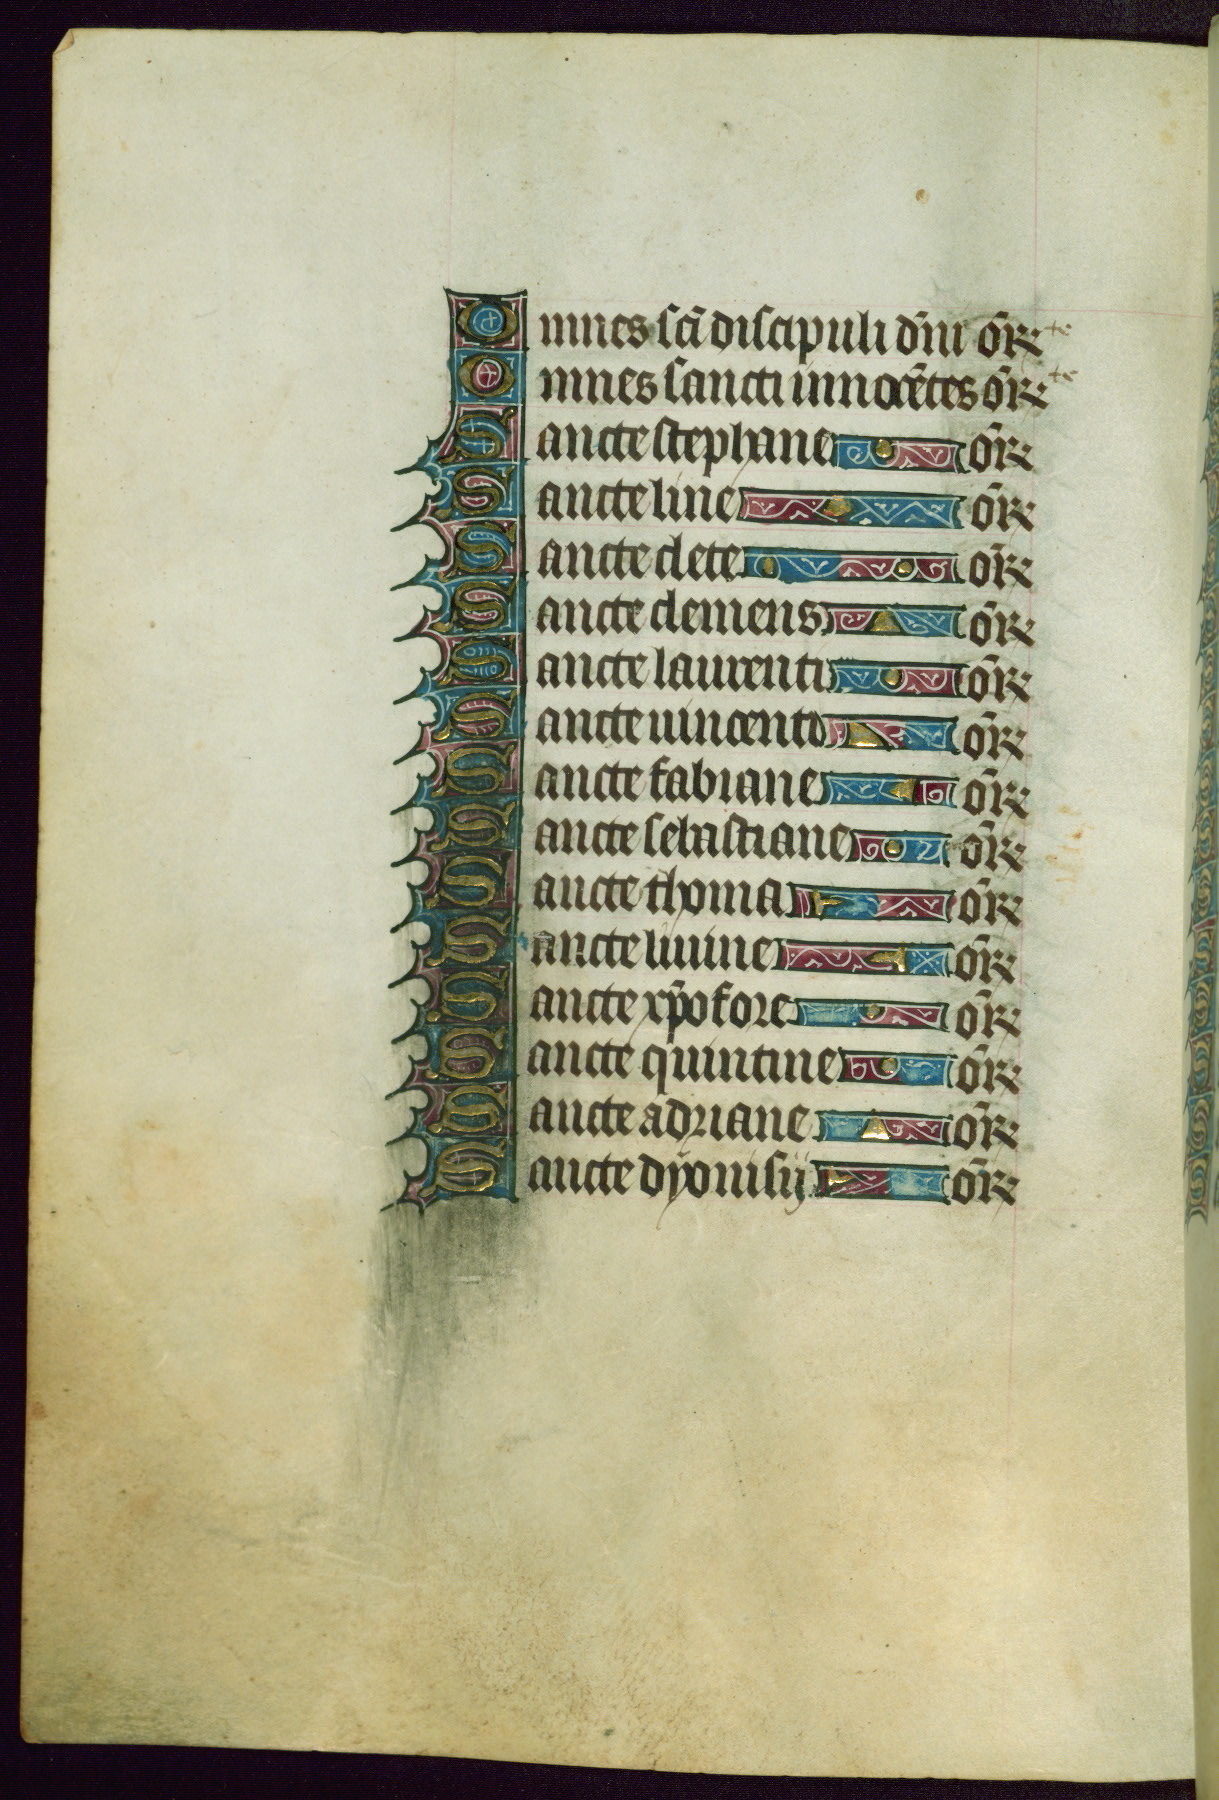 Omnes sc̄i discipuli dn̄i or̄
Omnes sancti innocētes or̄
Sancte stephane or̄
Sancte line or̄
Sancte clete or̄
Sancte clemens or̄
Sancte laurenti or̄
Sancte uincenti or̄
Sancte fabiane or̄
Sancte sebastiane or̄
Sancte thoma or̄
Sancte liuine or̄
Sancte xp̄ofore or̄
Sancte quintine or̄
Sancte adriane or̄
Sancte dyonisij or̄